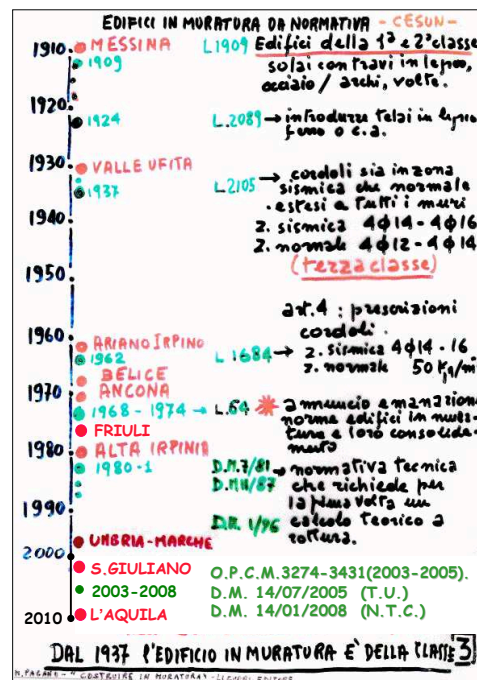 EDIFICI IN MURATURA DA NORMATIVA - CESUN -
1910 MESSINA L1909 Edifici della 1ª e 2ª classe
1909 solai con travi in legno,
acciaio / archi, volte.
1920
1924 L.2089 → introduzze telai in legno
ferro o c.a.
1930 VALLE UFITA
1937 L.2105 → cordoli sia in zona
sismica che normale
estesi a tutti i muri
1940 z. sismica 4φ14 - 4φ16
z. normale 4φ12 - 4φ14
1950 (terza classe)
art.4 : prescrizioni
cordoli.
1960 ARIANO IRPINO
1962 L 1684 → z. sismica 4φ14 - 16
z. normale 50 Kg/m
BELICE
1970 ANCONA
1968 - 1974 → L.64 annuncio emanazione
norme edifici in mura-
FRIULI tura e loro consolida-
mento
1980 ALTA IRPINIA
1980-1 D.M.7/81 → normativa tecnica
D.M11/87 che richiede per
1990 la prima volta un
D.M. 1/96 calcolo teorico a
UMBRIA-MARCHE rottura.
2000
S.GIULIANO O.P.C.M.3274-3431(2003-2005).
2003-2008 D.M. 14/07/2005 (T.U.)
2010 L'AQUILA D.M. 14/01/2008 (N.T.C.)
DAL 1937 l'EDIFICIO IN MURATURA E' DELLA CLASSE 3
M. PAGANO - "COSTRUIRE IN MURATURA" - LIGUORI EDITORE